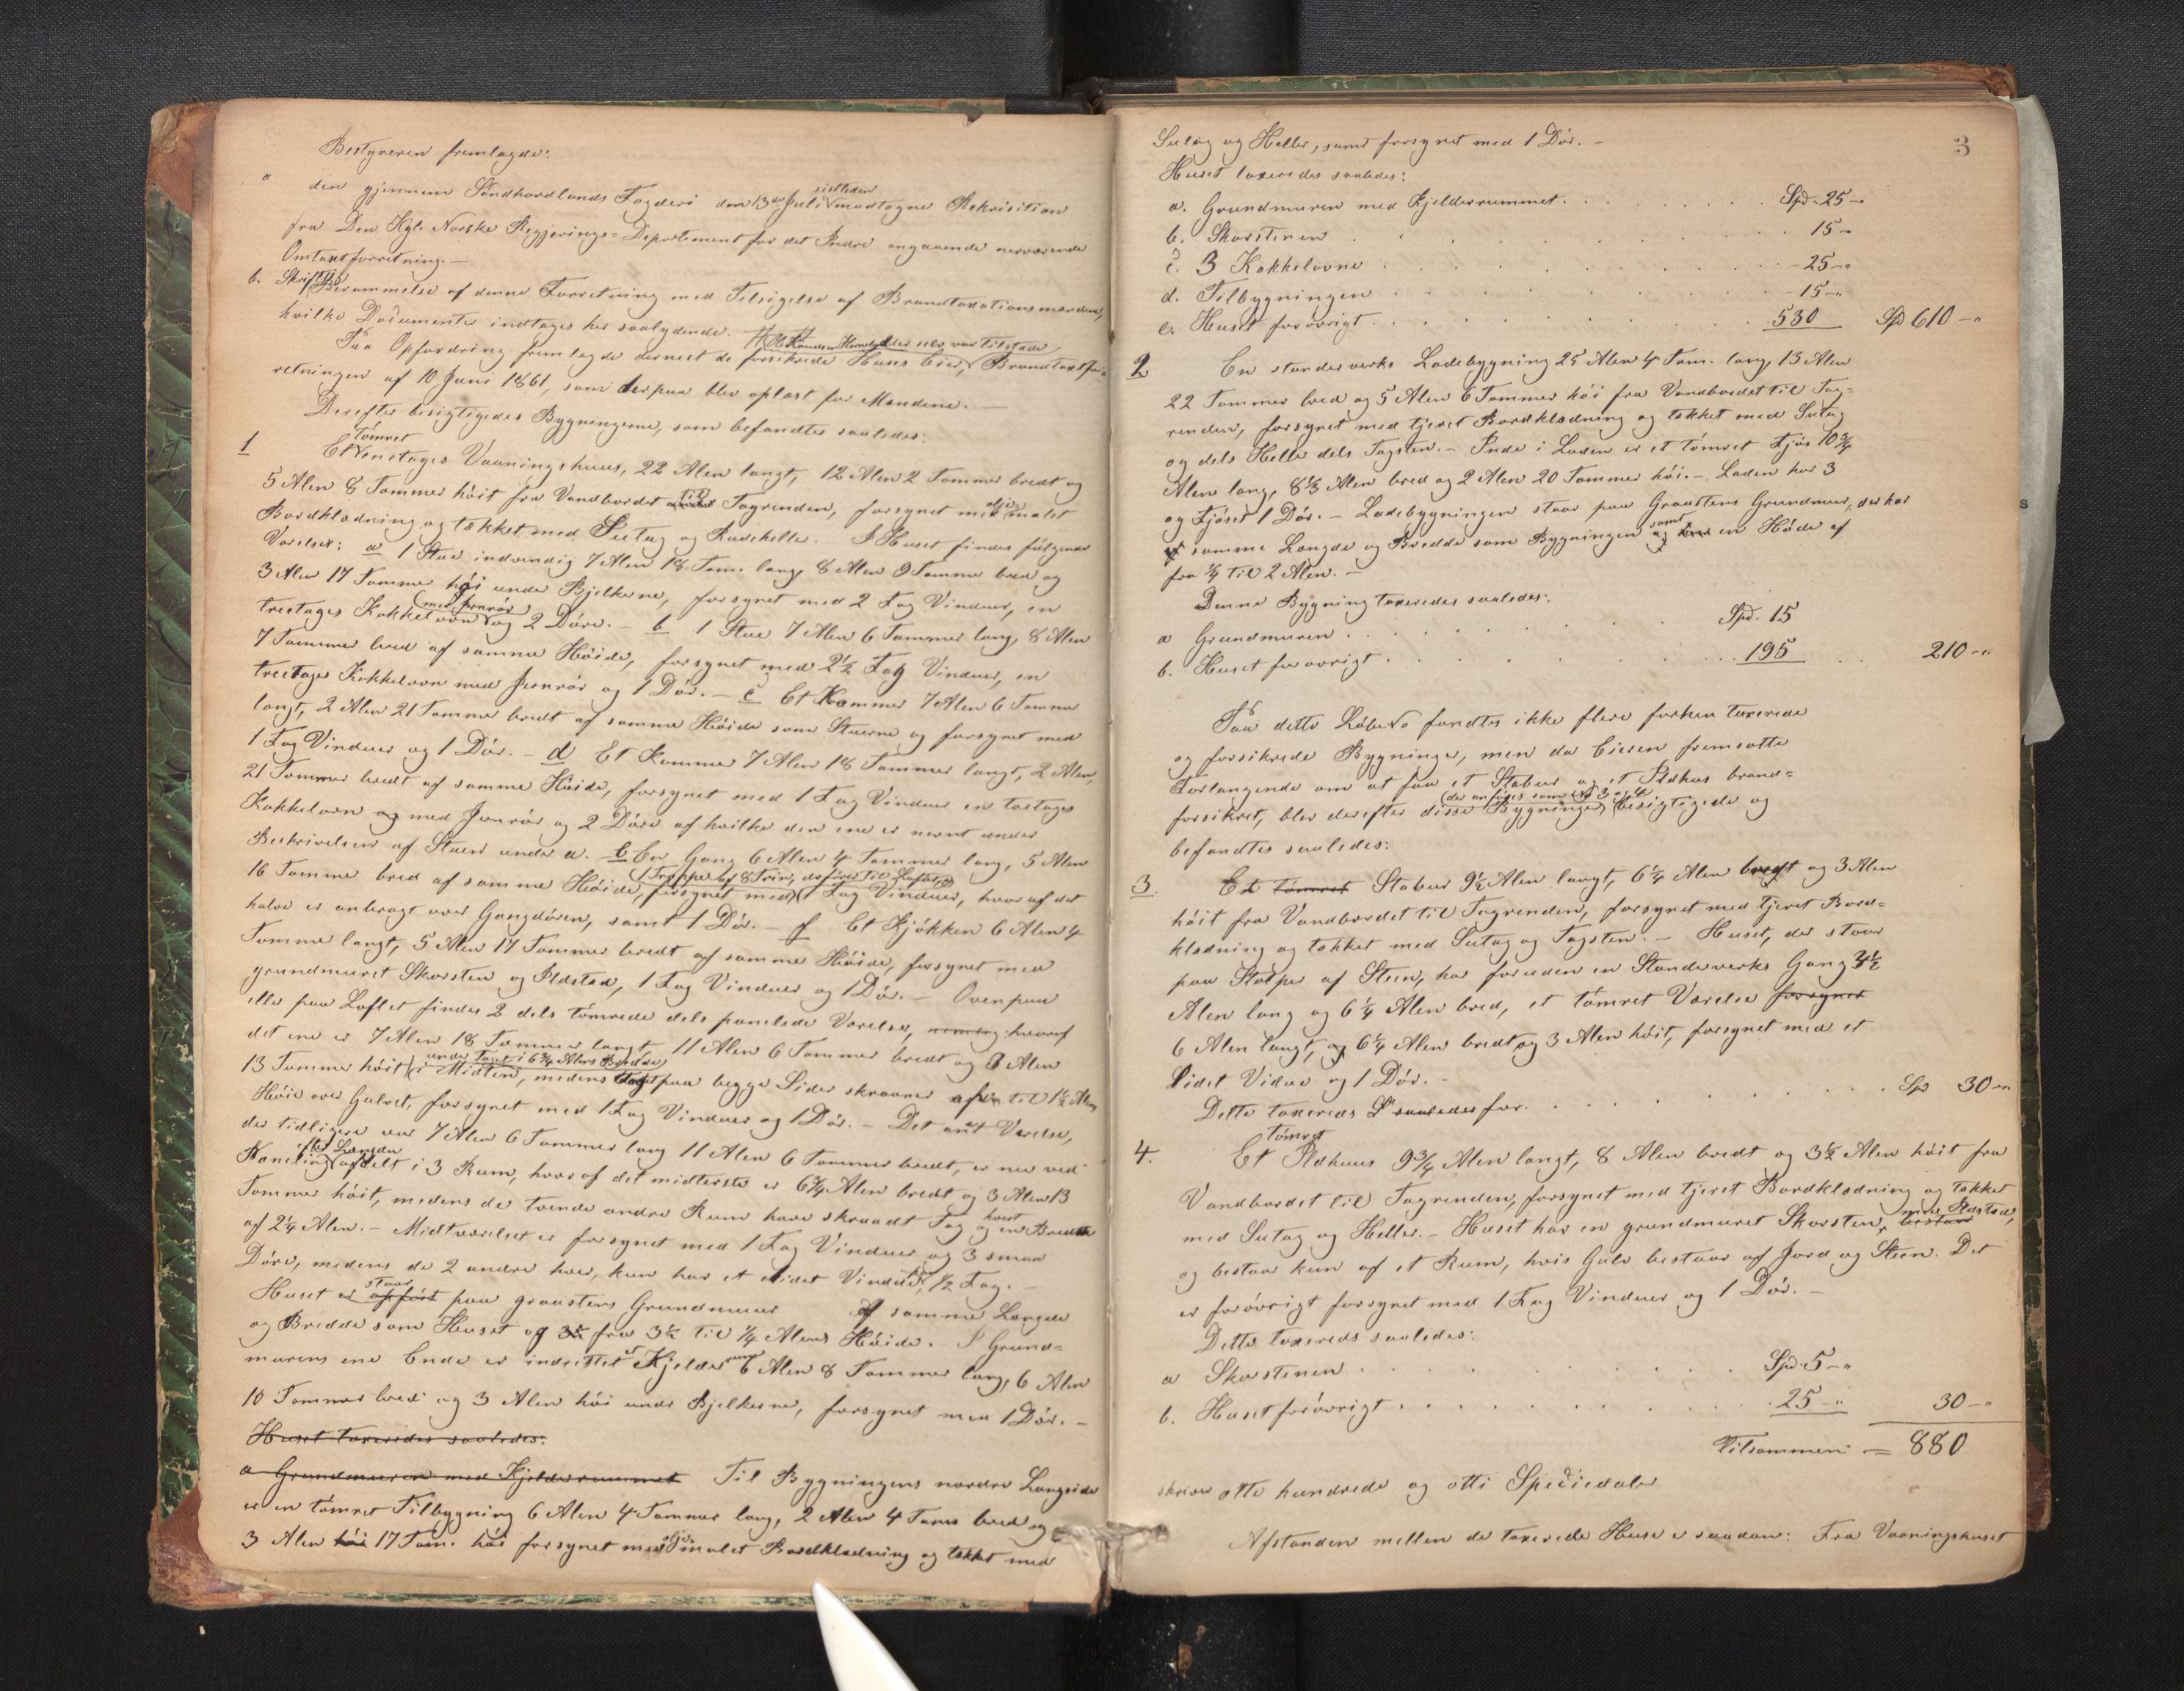 Bestyreren fremlagde:
a den gjennem Søndhordlands Fogderi den 13de Juli sidstleden modtagne Rekvisition
fra Den Kgl. Norske Regjerings-Departement for det Indre angaaende nærværende
Omtaxtforretning. —
b. Skriftlig Berammelse af denne Forretning med Tilsigelse af Brandtaxationsmændene,
hvilke Documenter indtages her saalydende.
Paa Opfordring fremlagde dernæst de forsikrede Huses Eier, der selv var tilstede Brandtaxtfor-
retningen af 10 Juni 1861, som derpaa blev oplæst for Mændene. —
Derefter besigtigedes Bygningerne, som befandtes saaledes:
1 Et tømret enetages Vaaningshuus, 22 Alen langt, 12 Alen 2 Tommer bredt og
5 Alen 8 Tommer høit fra Vandbordet til Tagrenden, forsynet med oljemalet
Bordklædning og tækket med Sutag og Rudeheller. — I Huset findes følgende
Værelser: a 1 Stue indvendig 7 Alen 18 Tom. lang, 8 Alen 9 Tommer bred og
3 Alen 17 Tommer høi under Bjelkerne, forsynet med 2 Fag Vinduer, en
treetages Kakkelovn med Jernrør og 2 Døre. — b 1 Stue 7 Alen 6 Tommer lang, 8 Alen
7 Tommer bred af samme Høide, forsynet med 2½ Fag Vinduer, en
treetages Kakkelovn med Jernrør og 1 Dør. — c Et Kammer 7 Alen 6 Tommer
langt, 2 Alen 21 Tommer bredt af samme Høide som Stuerne og forsynet med
1 Fag Vinduer og 1 Dør. — d Et Kammer 7 Alen 18 Tommer langt, 2 Alen,
21 Tommer bredt af samme Høide, forsynet med 1 Fag Vinduer en toetages
Kakkelovn og med Jernrør og 2 Døre af hvilke den ene er nævnt under
Beskrivelsen af Stuen under a. — e En Gang 6 Alen 4 Tommer lang, 5 Alen
16 Tomme bred af samme Høide, forsynet med (1 Trappe af 8 Trin, der fører til Loftet, og) 1 Fag Vinduer, hvoraf det
halve er anbragt over Gangdøren, samt 1 Dør. — f Et Kjøkken 6 Alen 4
Tomme langt, 5 Alen 17 Tommer bredt af samme Høide, forsynet med
grundmuret Skorsten og Ildsted, 1 Fag Vinduer og 1 Dør. — Ovenpaa
eller paa Loftet findes 2 dels tømrede dels panelede Værelser, nemlig hvoraf
det ene er 7 Alen 18 Tommer langt 11 Alen 6 Tommer bredt og 3 Alen
13 Tommer høit (under Taget i 6¾ Alens Bredde) i Midten, medens Taget paa begge Sider skraaner af til 1½ Alens
Høide over Gulvet, forsynet med 1 Fag Vinduer og 1 Dør. — Det andet Værelse,
der tidligere var 7 Alen 6 Tommer lang 11 Alen 6 Tommer bredt, er nu ved
Paneling efter Længden afdelt i 3 Rum, hvoraf det midterste er 6¾ Alen bredt og 3 Alen 13
Tommer høit, medens de tvende andre Rum have skraadt Tag og hvert en Bredde
af 2¼ Alen. — Midtværelset er forsynet med 1 Fag Vinduer og 3 smaa
Døre, medens de 2 andre hver, kun har et lidet Vindue, ½ Fag. —
Huset er opført staar paa graastens Grundmuur af samme Længde
og Bredde som Huset og fra 3½ til ¼ Alens Høide. I Grund-
murens ene Ende er indrettet et Kjelderrum 6 Alen 8 Tommer lang, 6 Alen
10 Tommer bred og 3 Alen høi under Bjelkerne, forsynet med 1 Dør. —
Huset taxeredes saaledes:
a Grundmuren med Kjelderrummet Til Bygningens nordre Langside
er en tømret Tilbygning 6 Alen 4 Tommer lang, 2 Alen 4 Tomr bred og
3 Alen høi 17 Tom. høi forsynet med oljemalet Bordklædning og tækket med
3
Sutag og Heller, samt forsynet med 1 Dør. —
Huset taxeredes saaledes:
a. Grundmuren med Kjelderrummet . . . Spd. 25 -"
b. Skorstenen . . . 15 -"
c. 3 Kakkelovne . . . 25 -"
d. Tilbygningen . . . 15 -"
e. Huset forøvrigt . . . 530 Spd 610 -"
2 En stænderverks Ladebygning 25 Alen 4 Tom. lang, 13 Alen
22 Tommer bred og 5 Alen 6 Tommer høi fra Vandbordet til Tag-
renden, forsynet med tjæret Bordklædning og tækket med Sutag
og dels Heller dels Tagsten. — Inde i Laden er et tømret Fjøs 10¾
Alen lang, 8⅓ Alen bred og 2 Alen 20 Tommer høi. — Laden har 3
og Fjøset 1 Dør. — Ladebygningen staar paa Graastens Grundmuur, der har
samme Længde og Bredde som Bygningen og samt en Høide af
fra ¼ til 2 Alen. —
Denne Bygning taxeredes saaledes:
a Grundmuren . . . Spd. 15
b. Huset forøvrigt . . . 195 . . 210 -"
Paa dette Løbe No fandtes ikke flere forhen taxerede
og forsikrede Bygninger, men da Eieren fremsatte
Forlangende om at faa et Stabur og et Ildhus brand-
forsikret, blev derefter disse Bygninger (der anføres som No 3 og 4) besigtigede og
befandtes saaledes:
3. Et tømret Stabur 9½ Alen langt, 6¼ Alen bredt og 3 Alen
høit fra Vandbordet til Tagrenden, forsynet med tjæret Bord-
klædning og tækket med Sutag og Tagsten. — Huset, der staar
paa Stolper af Steen, har foruden en Stænderverks Gang 3½
Alen lang og 6¼ Alen bred, et tømret Værelse forsynet
6 Alen langt, og 6¼ Alen bredt og 3 Alen høit, forsynet med et
lidet Vindue og 1 Dør. —
Dette taxereds saaledes for . . . Sp 30 -"
4. Et tømret Ildhuus 9¾ Alen langt, 8 Alen bredt og 3½ Alen høit fra
Vandbordet til Tagrenden, forsynet med tjæret Bordklædning og tækket
med Sutag og Heller. — Huset har en grundmuret Skorsten, bestaar med Ildsted,
og bestaar kun af et Rum, hvis Gulv bestaar af Jord og Steen. Det
er forøvrigt forsynet med 1 Fag Vinduer og 1 Dør. —
Dette taxereds saaledes:
a Skorstenen . . . Spd. 5 -"
b. Huset forøvrigt . . . 25 -" 30 -"
Tilsammen = 880
skriver otte hundrede og otti Speciedaler
Afstanden mellem de taxerede Huse er saadan: Fra Vaaningshuset